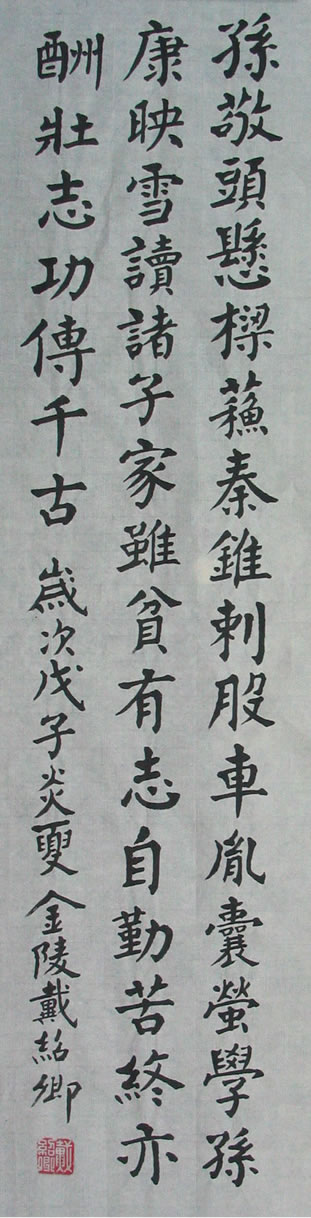 孫敬頭懸樑蘇秦錐刺股車胤囊螢學孫
康映雪讀諸子家雖貧有志自勤苦終亦
酬壯志功傳千古 歲次戊子炎夏金陵戴紹卿
戴紹卿